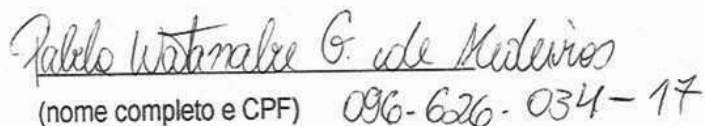 Pablo Watanabe G. de Medeiros
(nome completo e CPF) 096-626-034-17